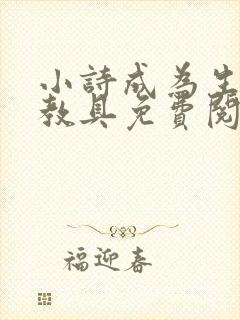 小詩成為生
教具免費閱
福迎春